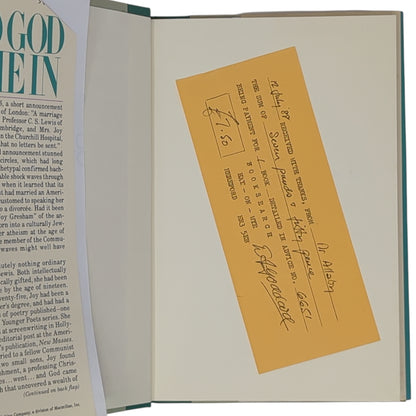 O GOD
ME IN
, a short announcement
of London: "A marriage
Professor C. S. Lewis of
mbridge, and Mrs. Joy
n the Churchill Hospital,
that no letters be sent."
announcement stunned
circles, which had long
hetypal confirmed bach-
able shock waves through
when it learned that its
had married an Ameri-
customed to speaking her
to a divorcée. Had it been
Joy Gresham" of the an-
orn into a culturally Jew-
er atheism at the age of
me member of the Commu-
waves might well have
utely nothing ordinary
ewis. Both intellectually
ically gifted, she had been
by the age of nineteen.
enty-five, Joy had been a
er's degree, and had had a
of poetry published in the
Younger Poets series. She
at screenwriting in Holly-
editorial post at the Ameri-
's publication, New Masses,
rried to a fellow Communist
two small sons, Joy found
hment, a professing Chris-
gs...went...and God came
h that uncovered a wealth of
(Continued on back flap)
Company, a division of Macmillan, Inc.
12 July 89 RECEIVED WITH THANKS, FROM Mr Allaby
THE SUM OF Seven pounds & fifty pence
BEING PAYMENT FOR 1 BOOK - DETAILED IN ADVICE NO. 6651
£7.50
BOOKSEARCH
HAY - ON - WYE
HEREFORD HR3 5EN